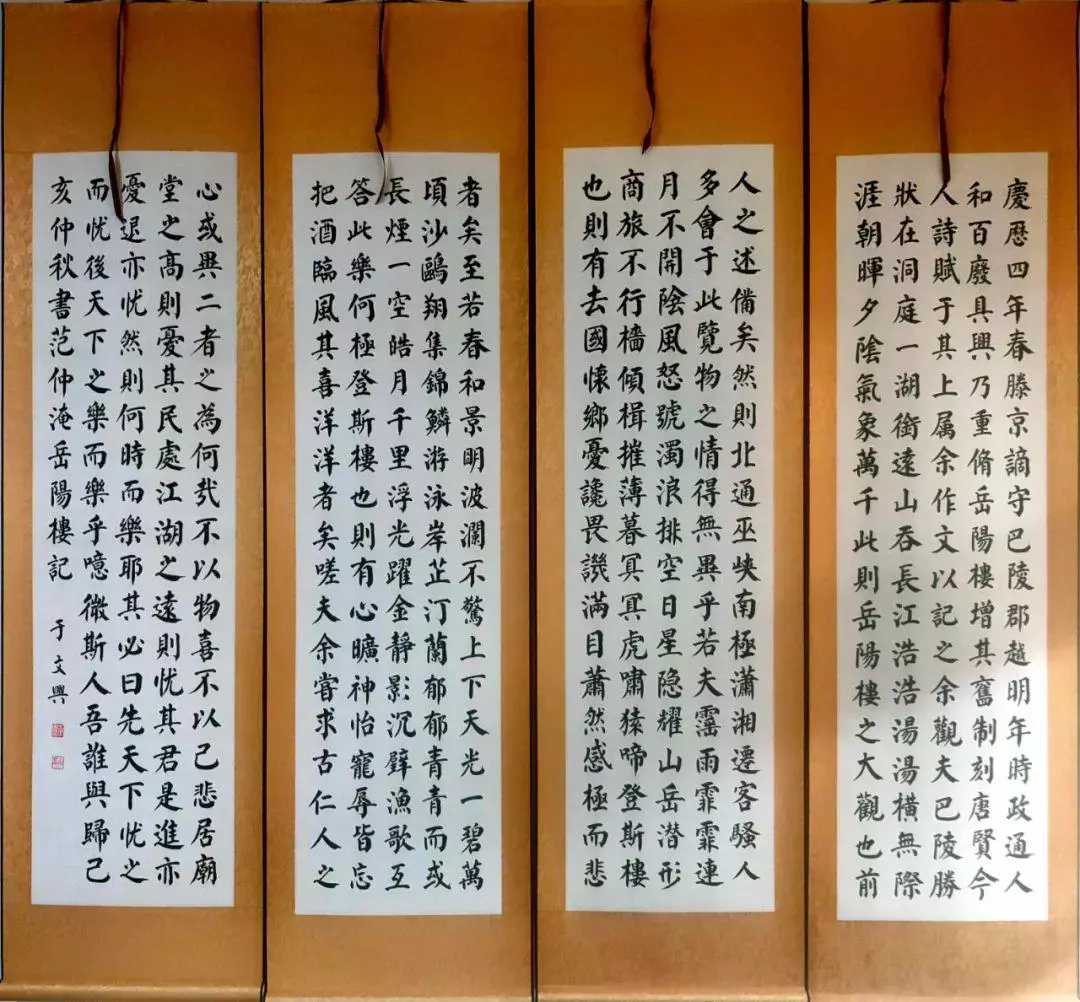 慶歷四年春滕京謫守巴陵郡越明年時政通人
和百廢具興乃重脩岳陽樓增其舊制刻唐賢今
人詩賦于其上属余作文以記之余觀夫巴陵勝
狀在洞庭一湖銜遠山吞長江浩浩湯湯橫無際
涯朝暉夕陰氣象萬千此則岳陽樓之大觀也前
人之述備矣然則北通巫峽南極瀟湘遷客騷人
多會于此覽物之情得無異乎若夫霪雨霏霏連
月不開陰風怒號濁浪排空日星隐耀山岳潜形
商旅不行檣傾楫摧薄暮冥冥虎嘯猿啼登斯樓
也則有去國懷鄉憂讒畏譏滿目蕭然感極而悲
者矣至若春和景明波瀾不驚上下天光一碧萬
頃沙鷗翔集錦鱗游泳岸芷汀蘭郁郁青青而或
長煙一空皓月千里浮光躍金靜影沉璧漁歌互
答此樂何極登斯樓也則有心曠神怡寵辱皆忘
把酒臨風其喜洋洋者矣嗟夫余嘗求古仁人之
心或異二者之為何哉不以物喜不以己悲居廟
堂之高則憂其民處江湖之遠則忧其君是進亦
憂退亦忧然則何時而樂耶其必曰先天下忧之
而忧後天下之樂而樂乎噫微斯人吾誰與歸己
亥仲秋書范仲淹岳陽樓記
于文興